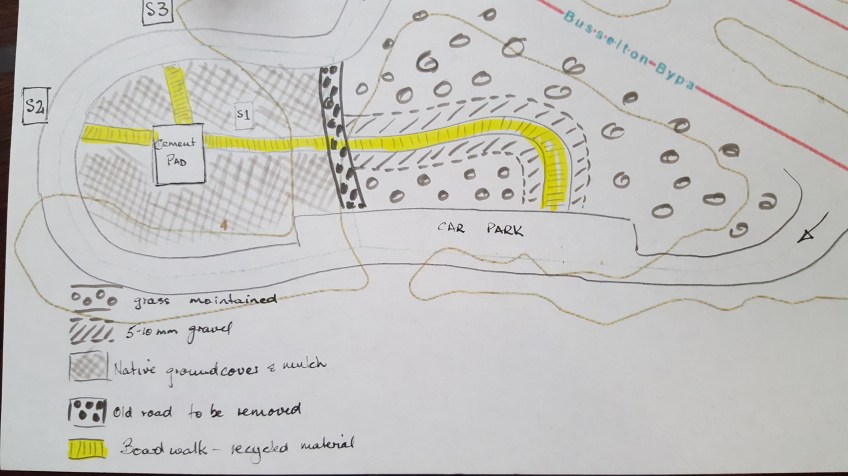 S3
Busselton-Bypa
S2
S1
Cement
PAD
4
CAR PARK
grass maintained
5-10 mm gravel
Native groundcovers & mulch
Old road to be removed
Boad walk - recycled material